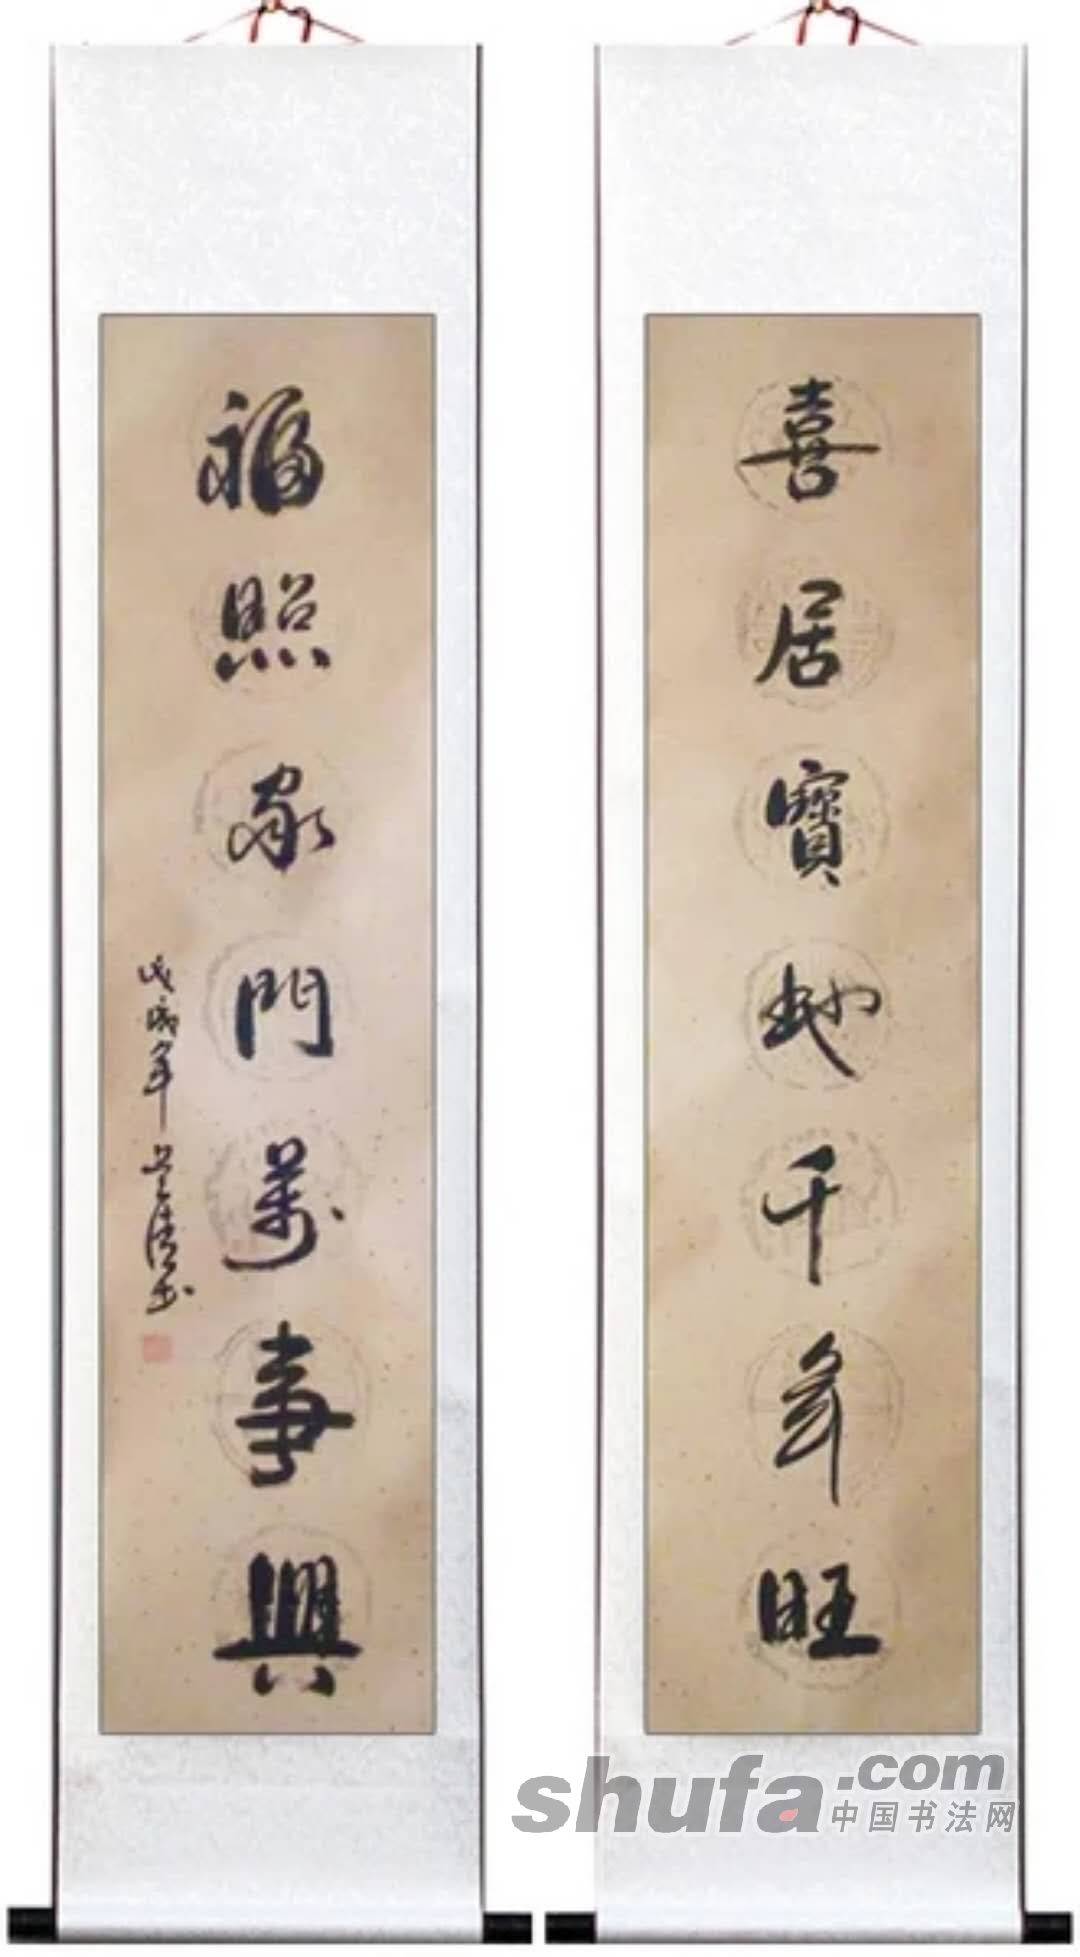 喜居寶地千年旺
福照家門萬事興
戊戌年
shufa.com
中国书法网